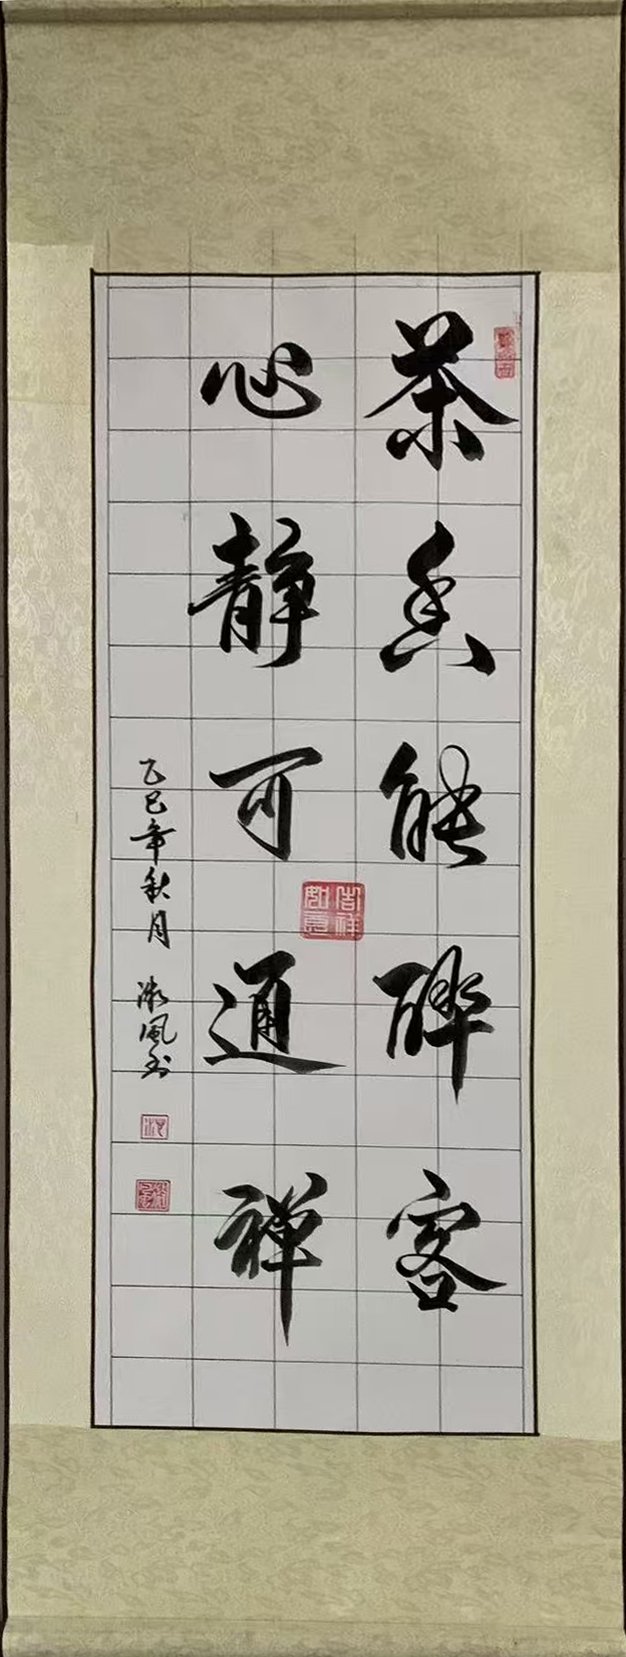 茶香能醉客
心静可通禅
乙巳年秋月
風书
吉祥如意